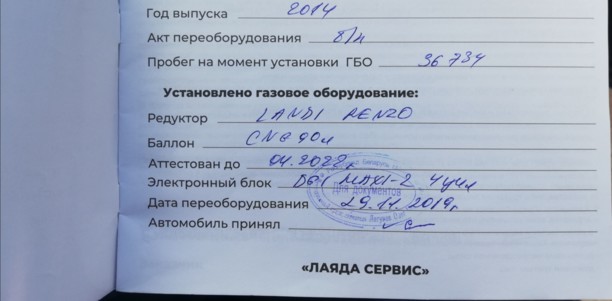 Год выпуска 2014
Акт переоборудования б/н
Пробег на момент установки ГБО 36 734
Установлено газовое оборудование:
Редуктор LANDI RENZO
Баллон CNG 90л
Аттестован до 04.2022г
Электронный блок MAXI-2 4цил
для документов
Дата переоборудования 29.11.2019г
Автомобиль принял
«ЛАЯДА СЕРВИС»